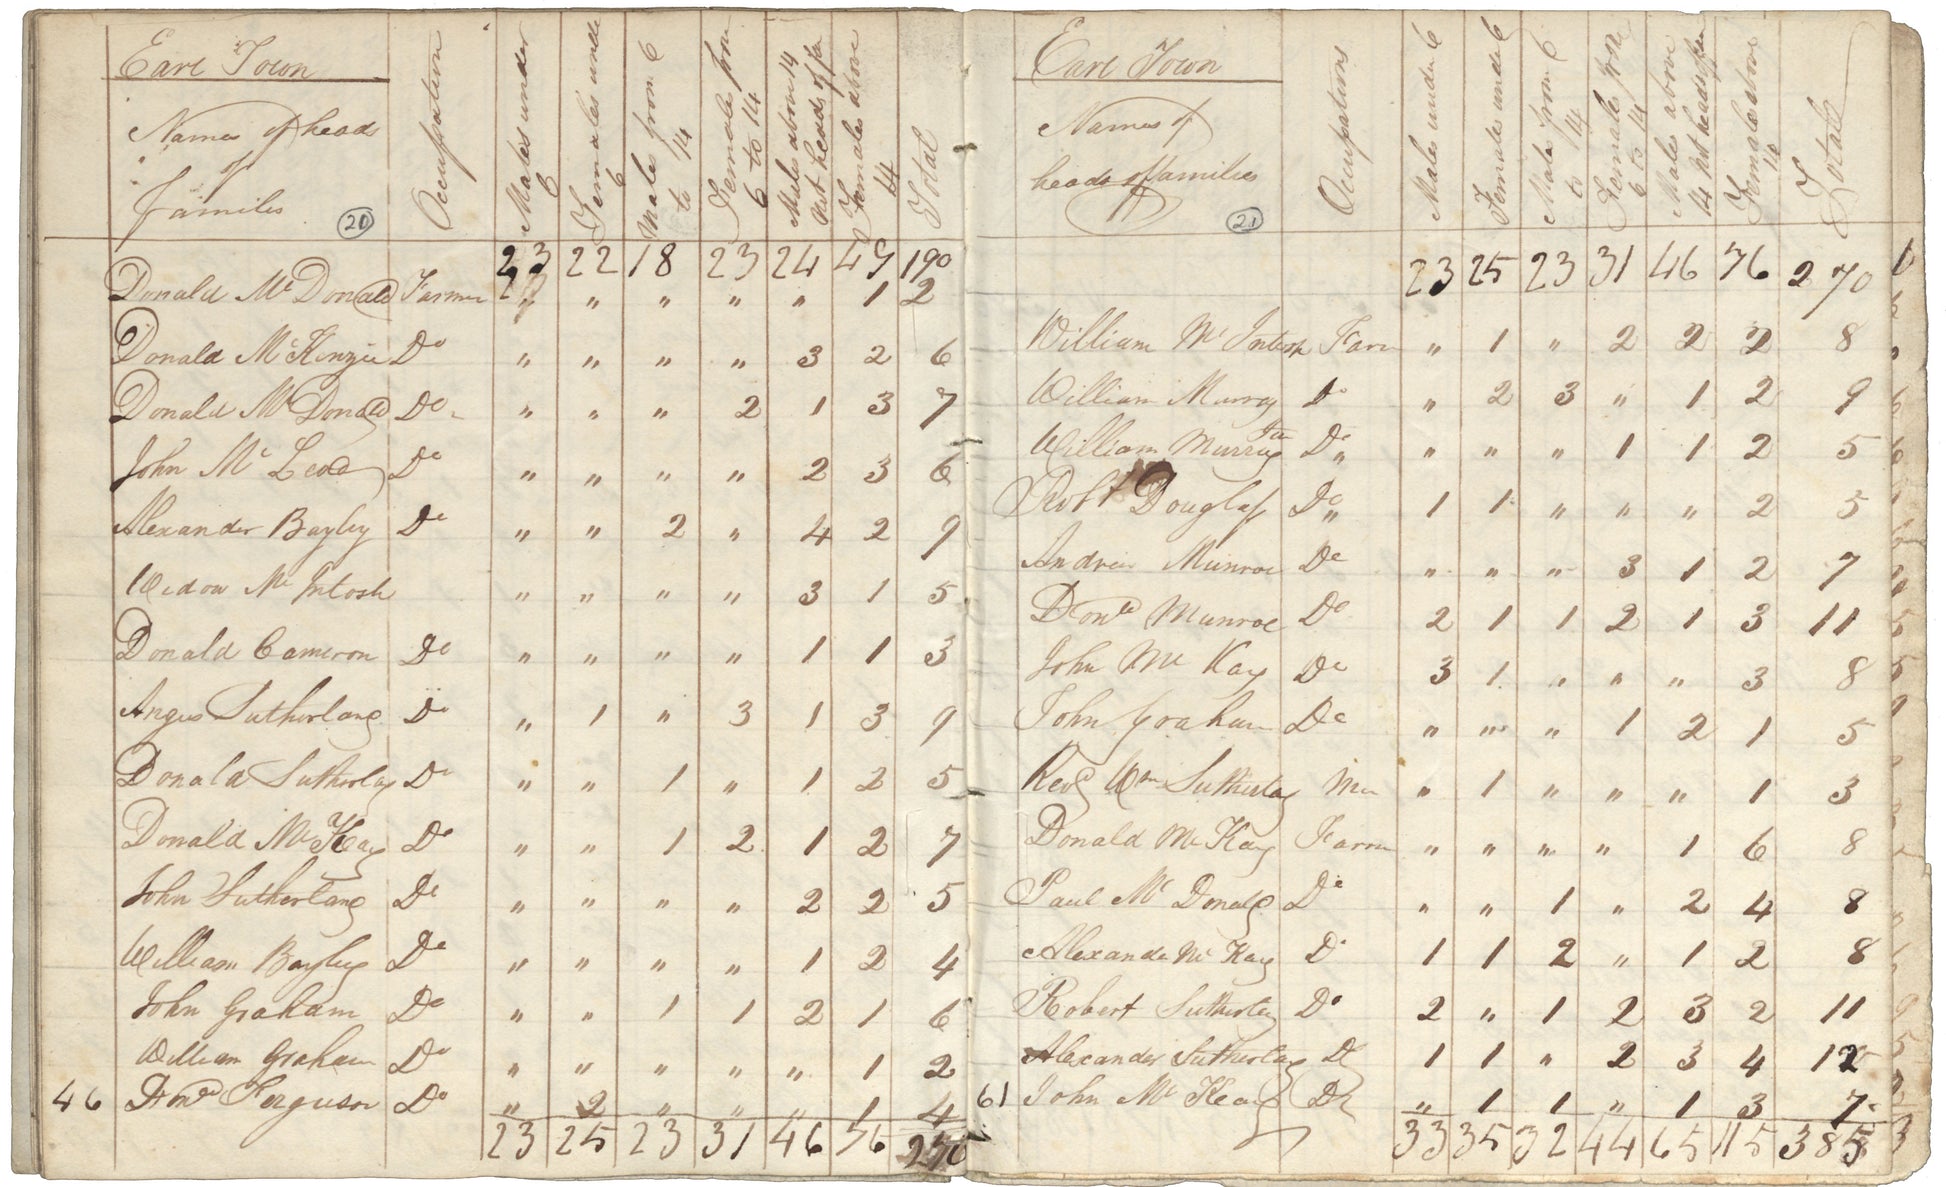 Earl Town
Names of heads
of
families
20
Occupation
Males under 6
Females unde 6
Male from 6 to 14
Female from 6 to 14
Males above 14 Not heads of fa
Females above 14
Total
23 22 18 23 24 49 190
Donald Mc Donald Farmer " " " " " 1 2
Donald McKenzie Do " " " " 3 2 6
Donald McDonald Do " " " 2 1 3 7
John Mc Leod Do " " " " 2 3 6
Alexander Bayley Do " " 2 " 4 2 9
Widow Mc Intosh " " " " 3 1 5
Donald Cameron Do " " " " 1 1 3
Angus Sutherland Do " 1 " 3 1 3 9
Donald Sutherlag Do " " 1 " 1 2 5
Donald McKay Do " " 1 2 1 2 7
John Sutherland Do " " " " 2 2 5
William Bayley Do " " " " 1 2 4
John Graham Do " " 1 1 2 1 6
William Graham Do " " " " " 1 2
46 Ferguson Do " 2 " " " 1 4
23 25 23 31 46 76 270
Earl Town
Names of
heads of families
21
Occupations
Males under 6
Female under 6
Male from 6 to 14
Female from 6 to 14
Males above 14 Not heads of fam
Females above 14
Totall
23 25 23 31 46 76 270
William Mc Intosh Farm " 1 " 2 2 2 8
William Murray Do " 2 3 " 1 2 9
William Murray Do " " " 1 1 2 5
Robt Douglass Do 1 1 " " " 2 5
Andrew Munroe Do " " " 3 1 2 7
Dond Munroe Do 2 1 1 2 1 3 11
John Mc Kay Do 3 1 " " " 3 8
John Graham Do " " " 1 2 1 5
Revd Wm Sutherlag Min " 1 " " " 1 3
Donald McKay Farm " " " " 1 6 8
Paul Mc Donald Do " " 1 " 2 4 8
Alexande McKay Do 1 1 2 " 1 2 8
Robert Sutherlag Do 2 " 1 2 3 2 11
Alexander Sutherlag Do 1 1 " 2 3 4 12
61 John Mc Keay Do " 1 1 " 1 3 7
33 35 32 44 65 115 385